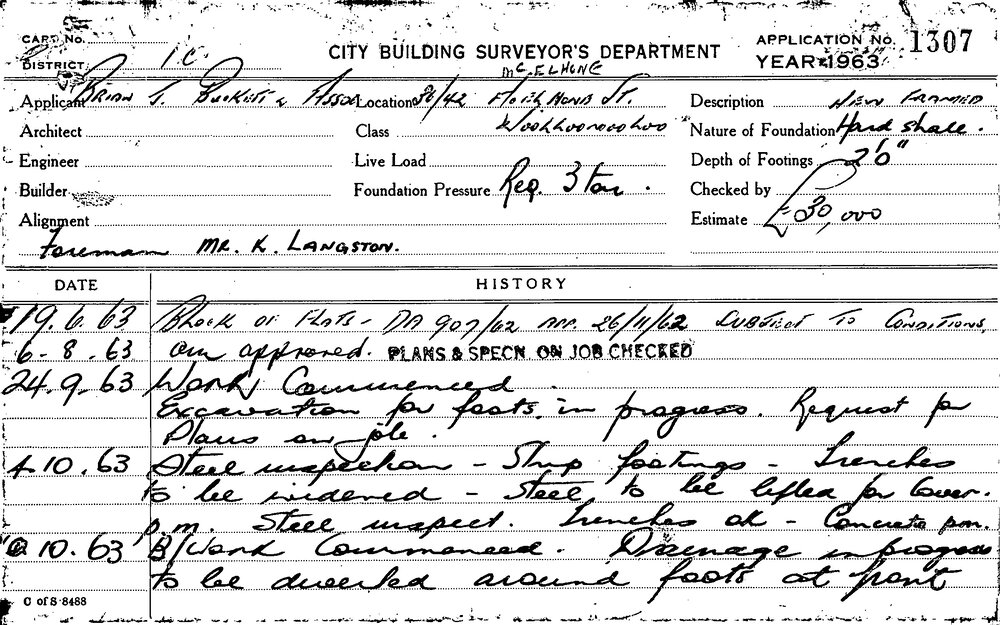 CARD No.
DISTRICT 1C.
CITY BUILDING SURVEYOR'S DEPARTMENT
APPLICATION No. 1307
YEAR 1963
McELHONE
Applicant BRIAN J. Location 36/42 ST. Description NEW FRAMED
Architect Class Woolloomooloo Nature of Foundation Hard shale.
Engineer Live Load Depth of Footings 2'0"
Builder Foundation Pressure Req. 3 Ton. Checked by
Alignment Estimate £30,000
Foreman MR. K. LANGSTON.
DATE HISTORY
19.6.63 BLOCK OF FLATS - DA 907/62 APP. 26/11/62 SUBJECT TO CONDITIONS.
6-8.63 approved. PLANS & SPECN. ON JOB CHECKED
24.9.63 Work Commenced.
Excavation for foots. in progress. Request for
Plans on job.
4.10.63 Steel inspection - Strip footings - Trenches
to be widened - Steel to be lifted for cover.
p.m. Steel inspect. Trenches ok - Concrete pm.
10.63 B/Work Commenced. Drainage in progress
to be diverted around foots at front
C of S 8488